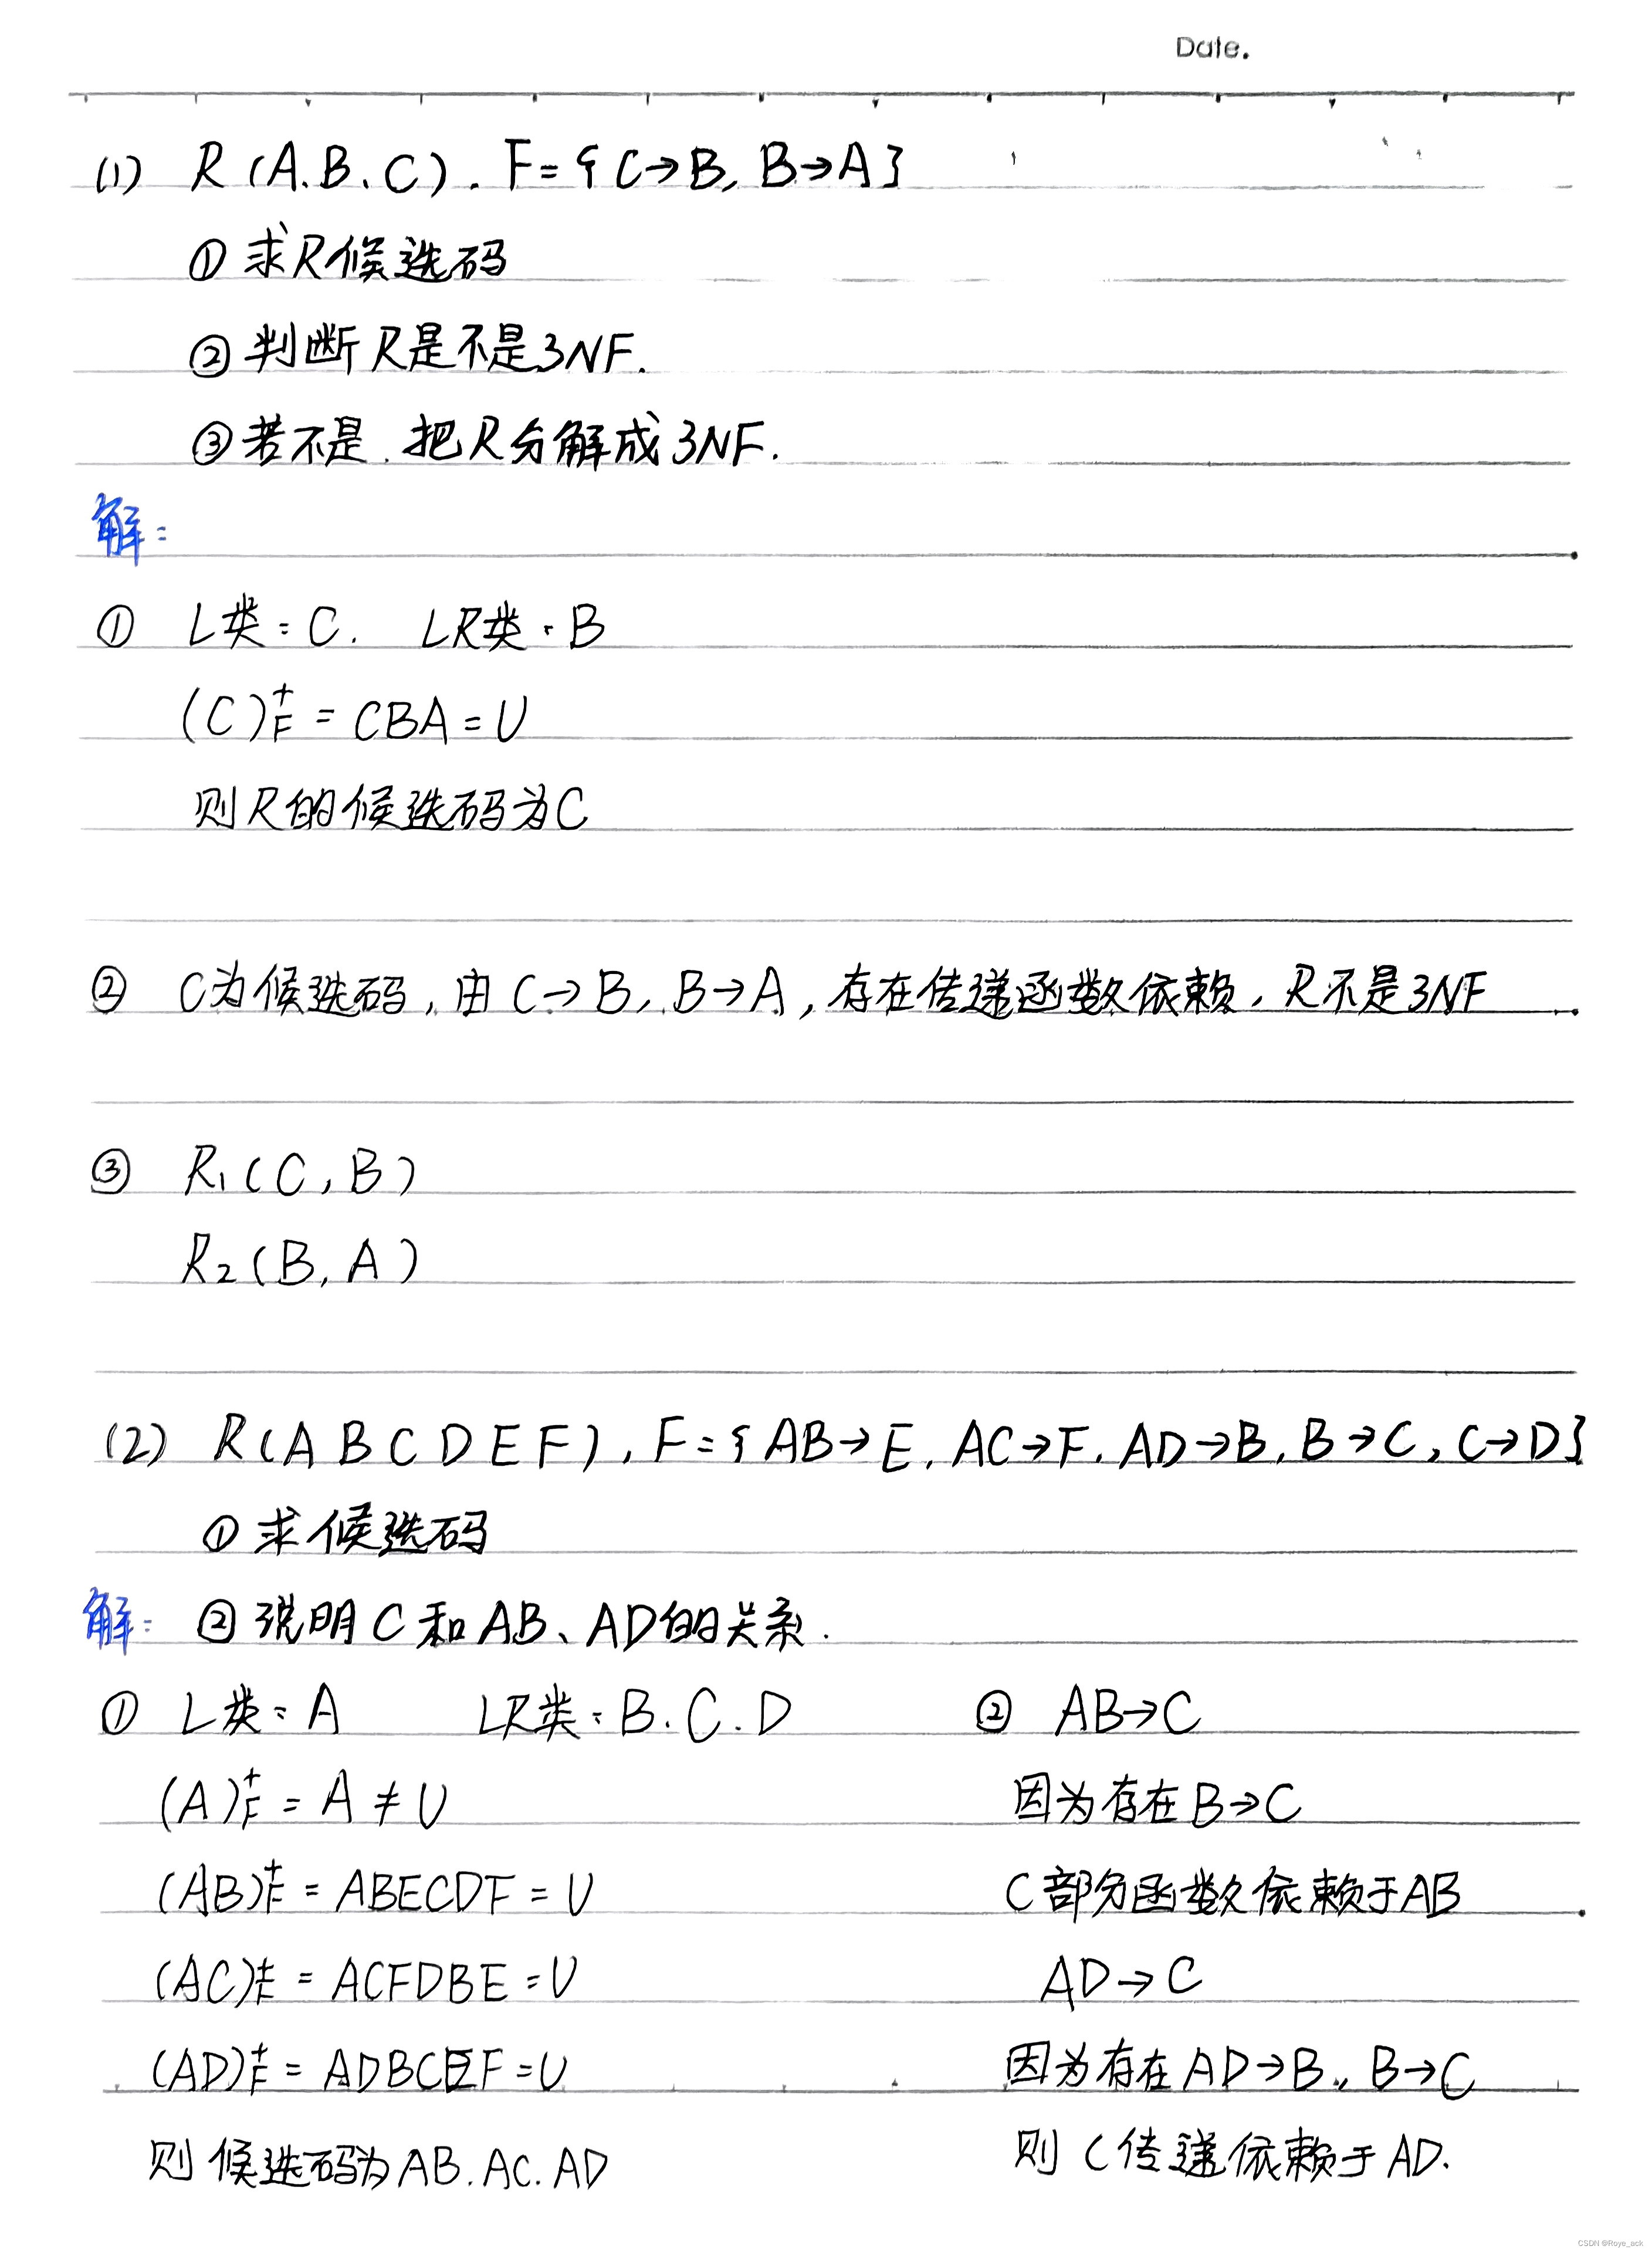 Date.
(1) R(A.B、C). F={C→B, B→A}
① 求R候选码
② 判断R是不是3NF.
③ 若不是.把R分解成3NF.
解:
① L类:C. LR类:B
(C)F⁺=CBA=U
则R的候选码为C
② C为候选码,由C→B,B→A,存在传递函数依赖,R不是3NF
③ R₁(C,B)
R₂(B,A)
(2) R(ABCDEF),F={AB→E,AC→F,AD→B,B→C,C→D}
① 求候选码
解: ② 说明C和AB、AD的关系.
① L类:A LR类:B.C.D
(A)F⁺=A≠U
(AB)F⁺=ABECDF=U
(AC)F⁺=ACFDBE=U
(AD)F⁺=ADBCEF=U
则候选码为AB.AC.AD
② AB→C
因为存在B→C
C部分函数依赖于AB
AD→C
因为存在AD→B,B→C
则C传递依赖于AD.
CSDN @Roye_ack